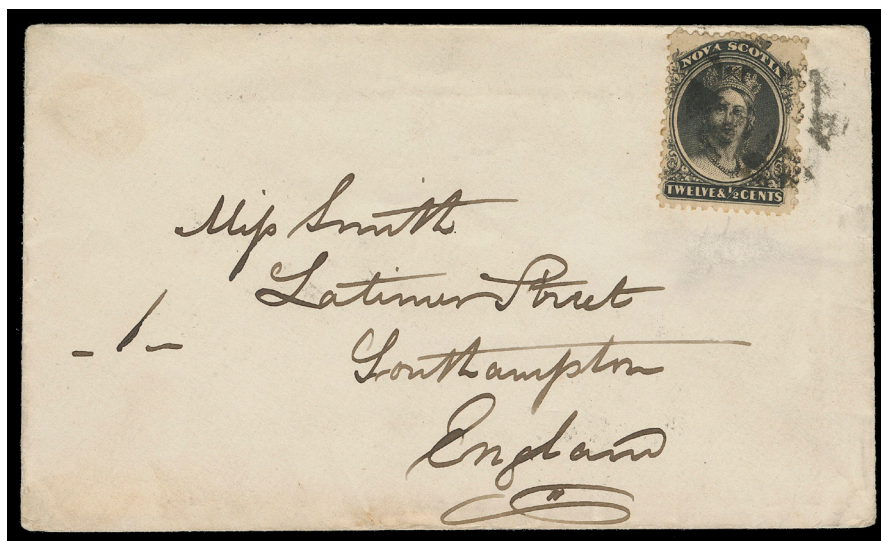 NOVA SCOTIA
TWELVE & ½ CENTS
Miss Smith
Latimer Street
- 1 -
Southampton
England